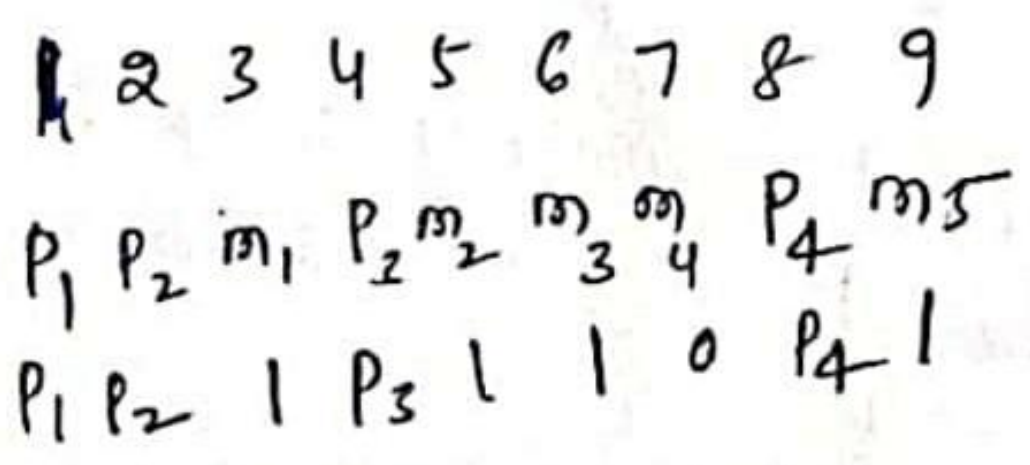 1 2 3 4 5 6 7 8 9
P₁ P₂ m₁ P₃ m₂ m₃ m₄ P₄ m5
P₁ P₂ 1 P₃ 1 1 0 P₄ 1